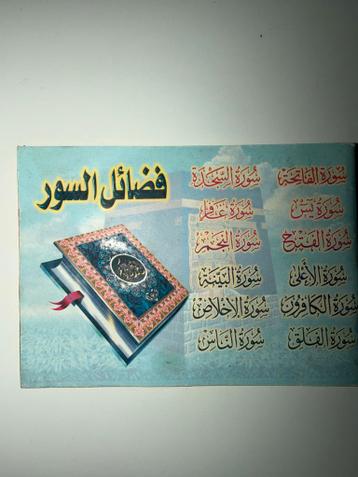 فضائل السور
سورة الفاتحة
سورة السجدة
سورة يس
سورة غافر
سورة الفتح
سورة النجم
سورة الأعلى
سورة البينة
سورة الكافرون
سورة الإخلاص
سورة الفلق
سورة الناس